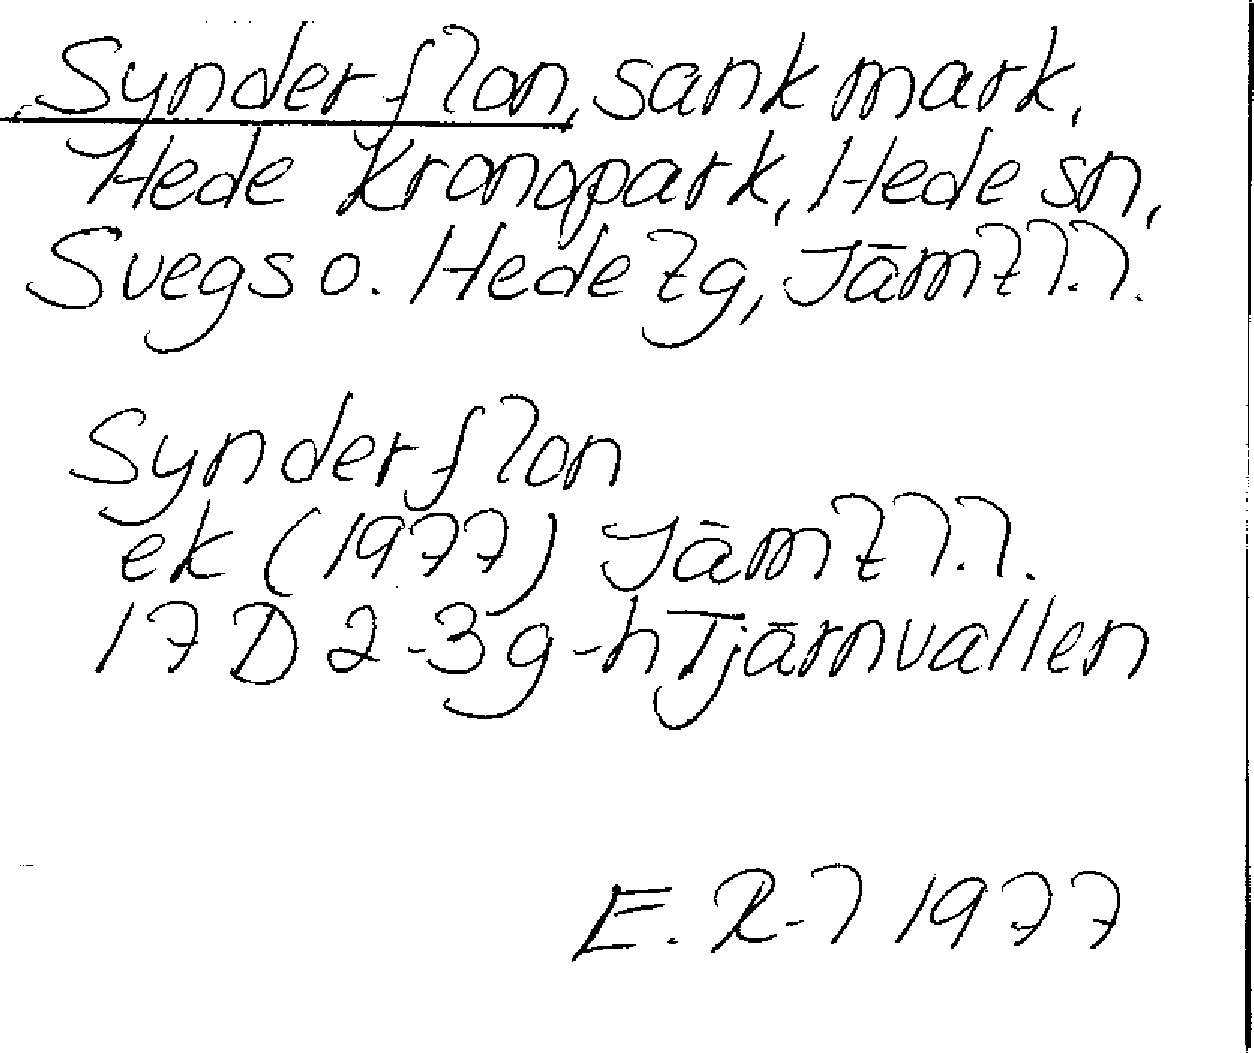 Synderflon, sank mark,
Hede Kronopark, Hede sn,
Svegs o. Hede tg, Jämtl.l.
Synderflon
ek (1977) Jämtl.l.
17 D 2-3 g-h Tjärnvallen
E. R-l 1977